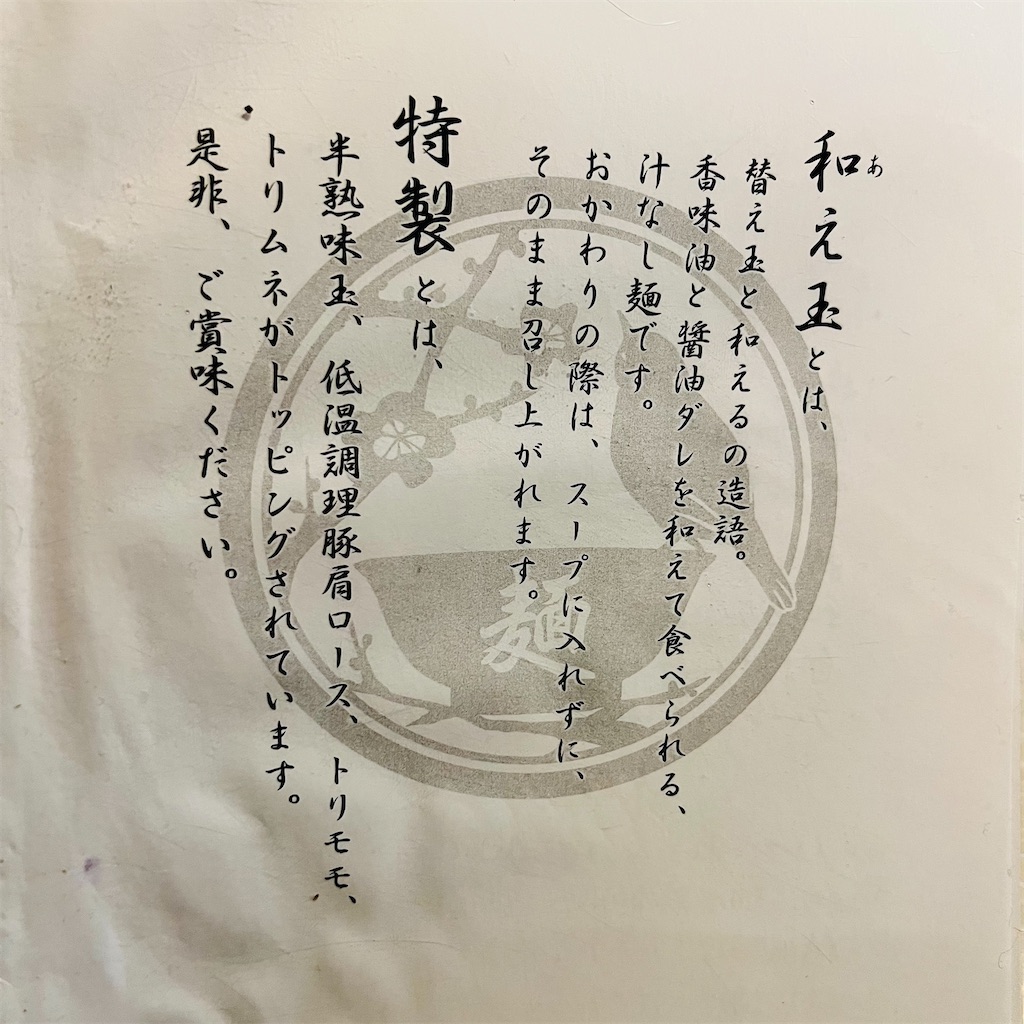 和え玉とは、
あ
替え玉と和えるの造語。
香味油と醤油ダレを和えて食べられる、
汁なし麺です。
おかわりの際は、スープに入れずに、
そのまま召し上がれます。
特製とは、
半熟味玉、低温調理豚肩ロース、トリモモ、
トリムネがトッピングされています。
是非、ご賞味ください。
麺